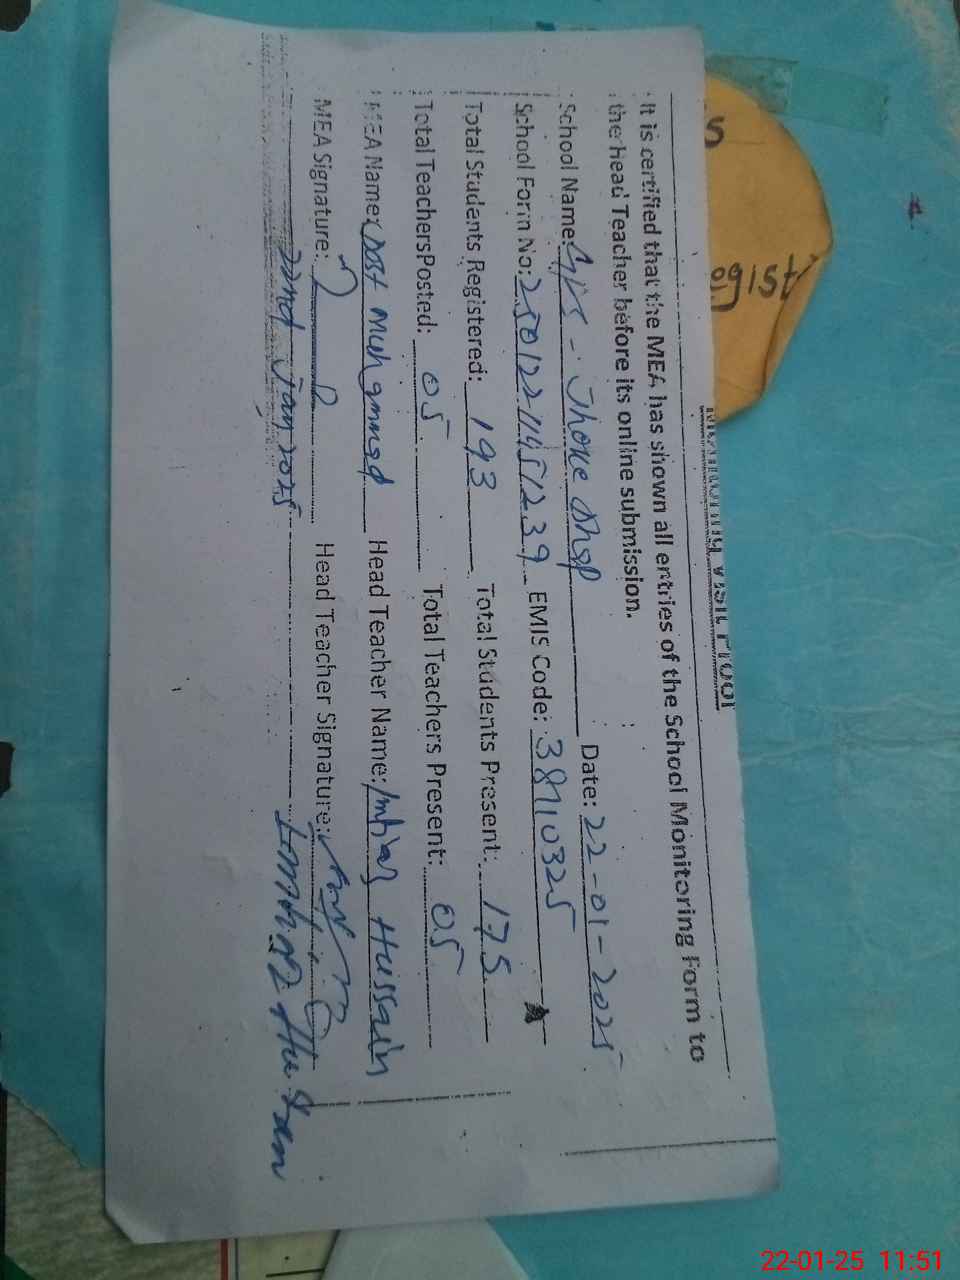 Monitoring Visit Proof
It is certified that the MEA has shown all entries of the School Monitoring Form to
the Head Teacher before its online submission.
School Name: - Jhoke Date: 22-01-2025
School Form No: EMIS Code: 38110325
Total Students Registered: 193 Total Students Present: 175
Total Teachers Posted: 05 Total Teachers Present: 05
MEA Name: Dost Muhammad Head Teacher Name: Imtiaz Hussain
MEA Signature: Head Teacher Signature:
22nd Jan 2025 Imtiaz Hussain
S
egist
22-01-25 11:51